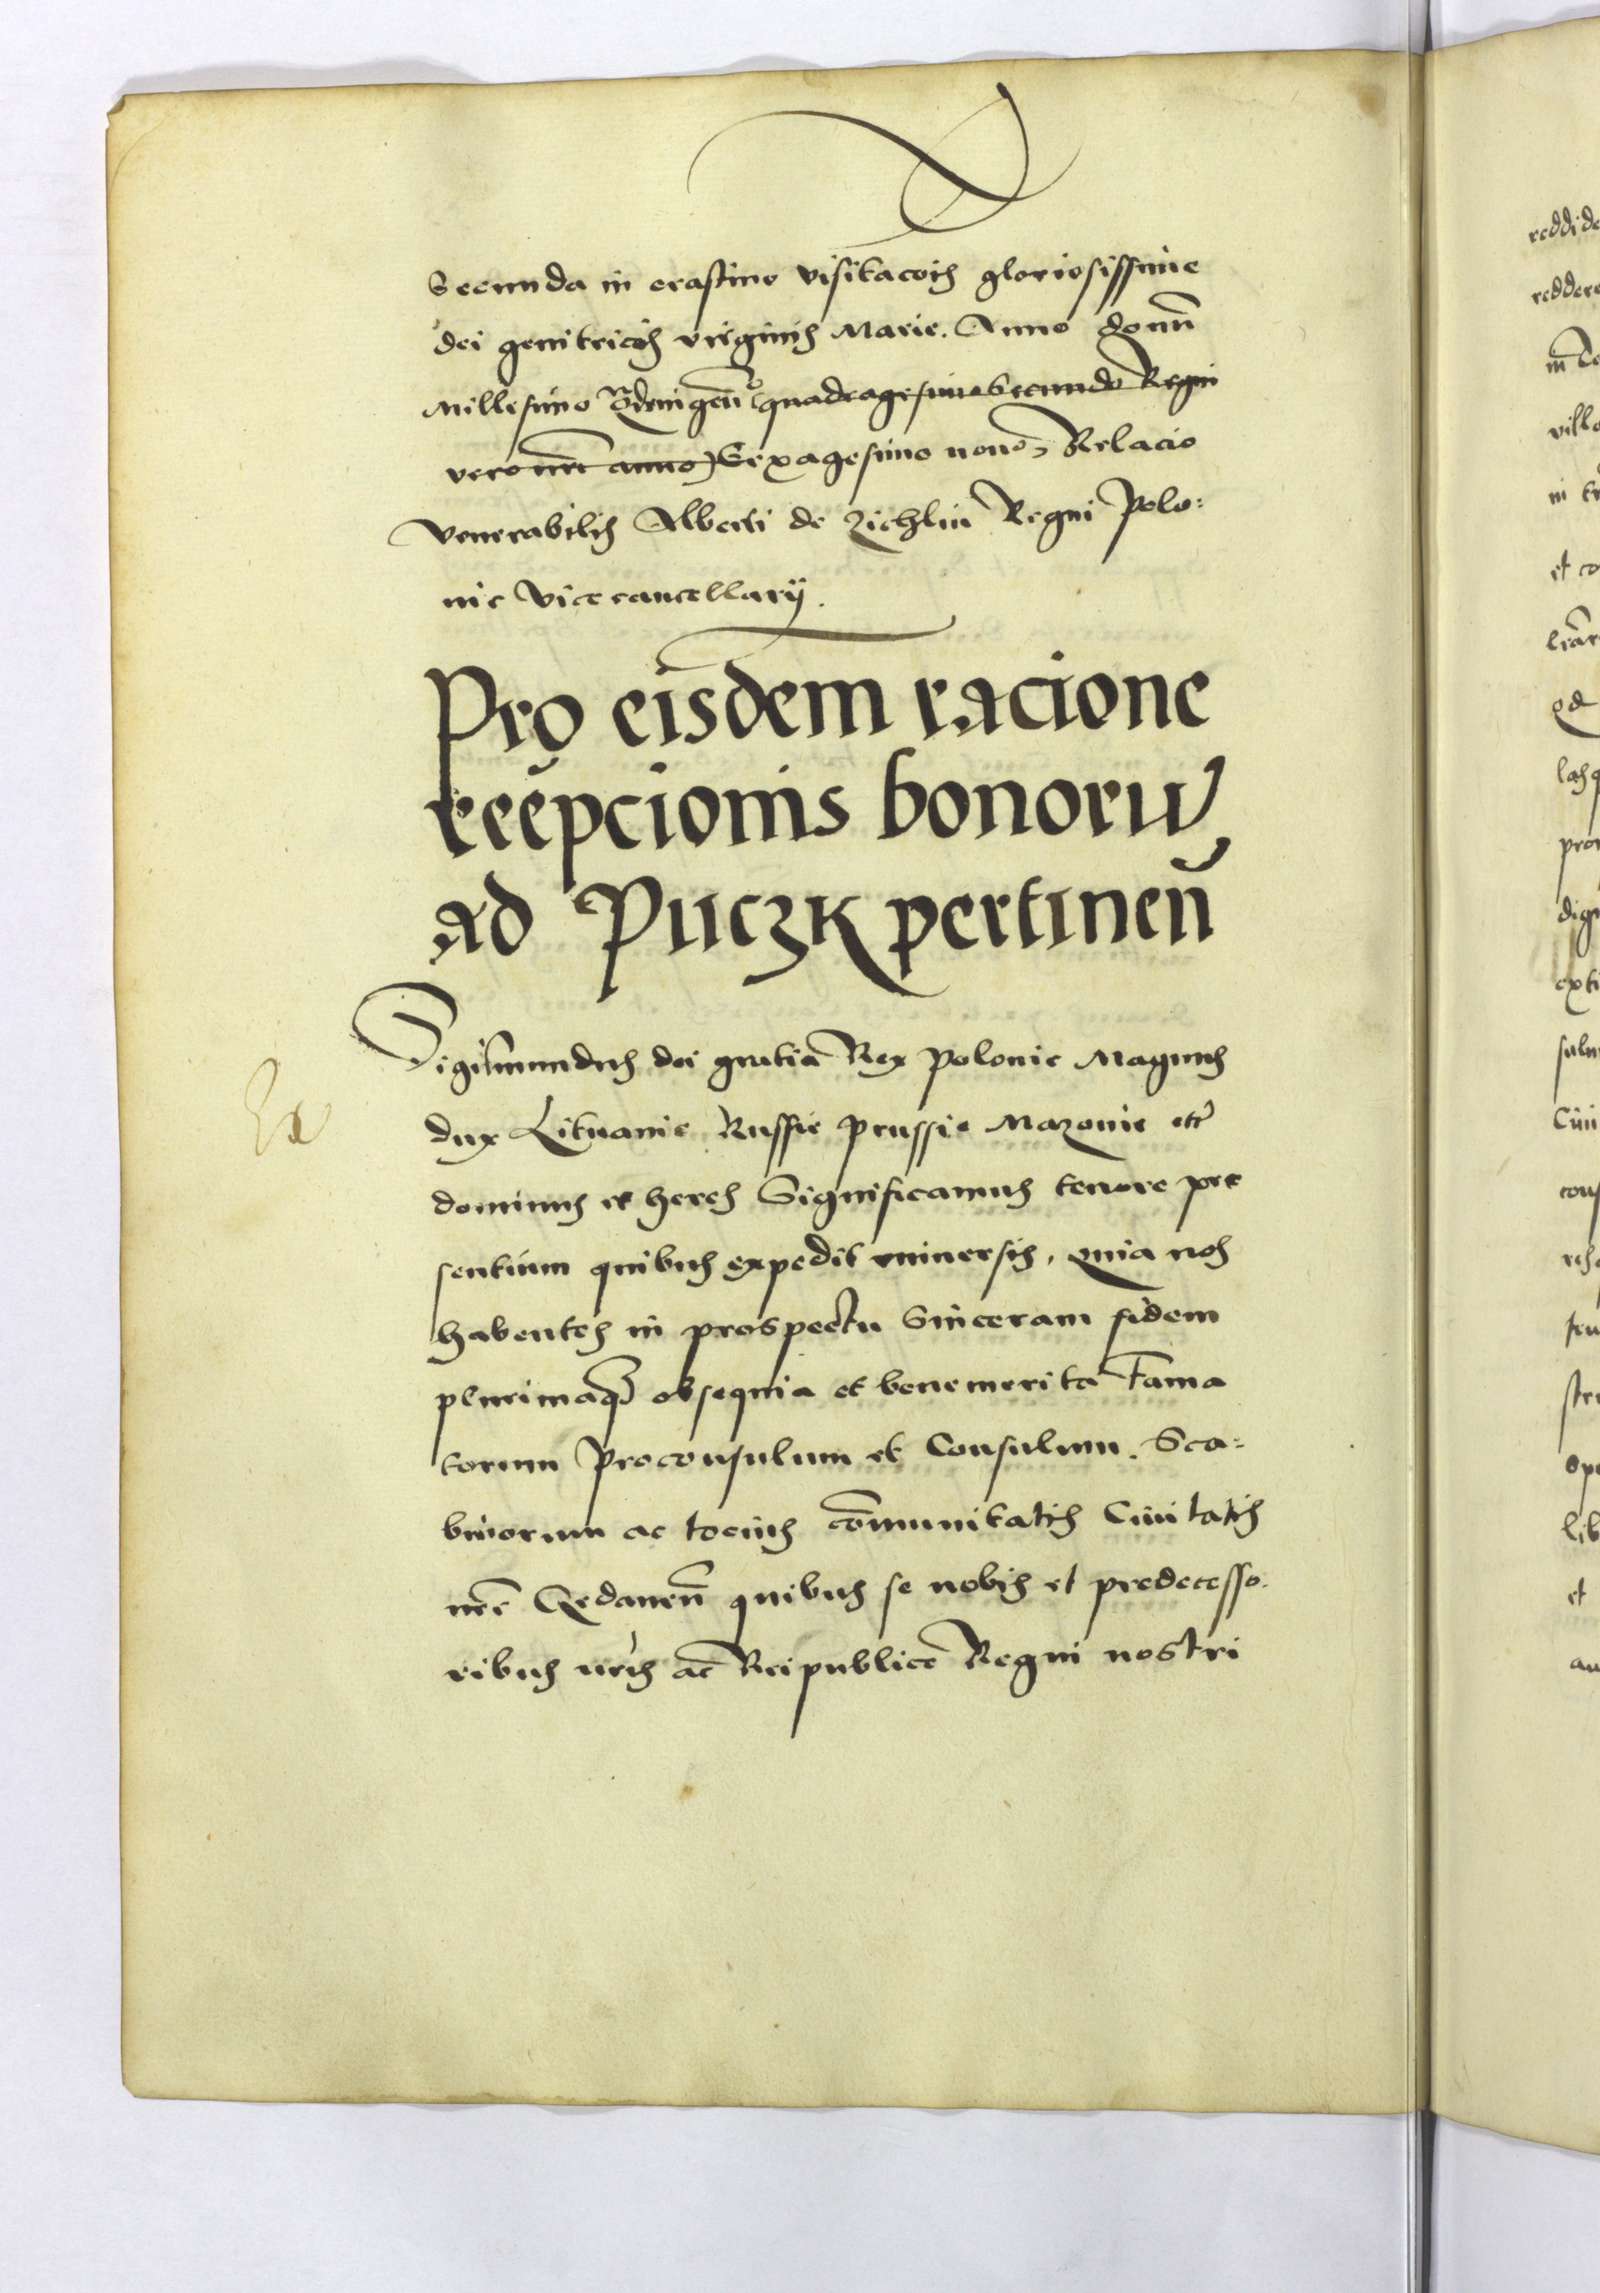 Secunda in crastino visitacõis gloriosissime
dei genitricis virginis Marie. Anno domñ
Millesimo Quadringeñ quadragesimo Secundo Regni
vero nrĩ anno) Sexagesimo nono, Relacio
Venerabilis Alberti de Zichlin Regni Polo:
nie Vicecancellarij.
Pro eisdem racione
recepcionis bonorum
ad Puczk pertineñ
Sigismundus dei gratia Rex Polonie Magnus
dux Lituanie Russie Prussie Mazouie etc̃
dominus et heres Significamus tenore pre
sentium quibus expedit vniuersis, quia nos
habentes in prospectu Sinceram fidem
plurimaq obsequia et benemerita Fama
torum Proconsulum et Consulum. Sca:
binorum ac tocius cõmunitatis Ciuitatis
nrẽ Gedaneñ quibus se nobis et predecesso.
ribus nrĩs ac Reipublice Regni nostri
reddide
reddere
villa
et co
prop
dign
exti
Ciui
cons
lib
et